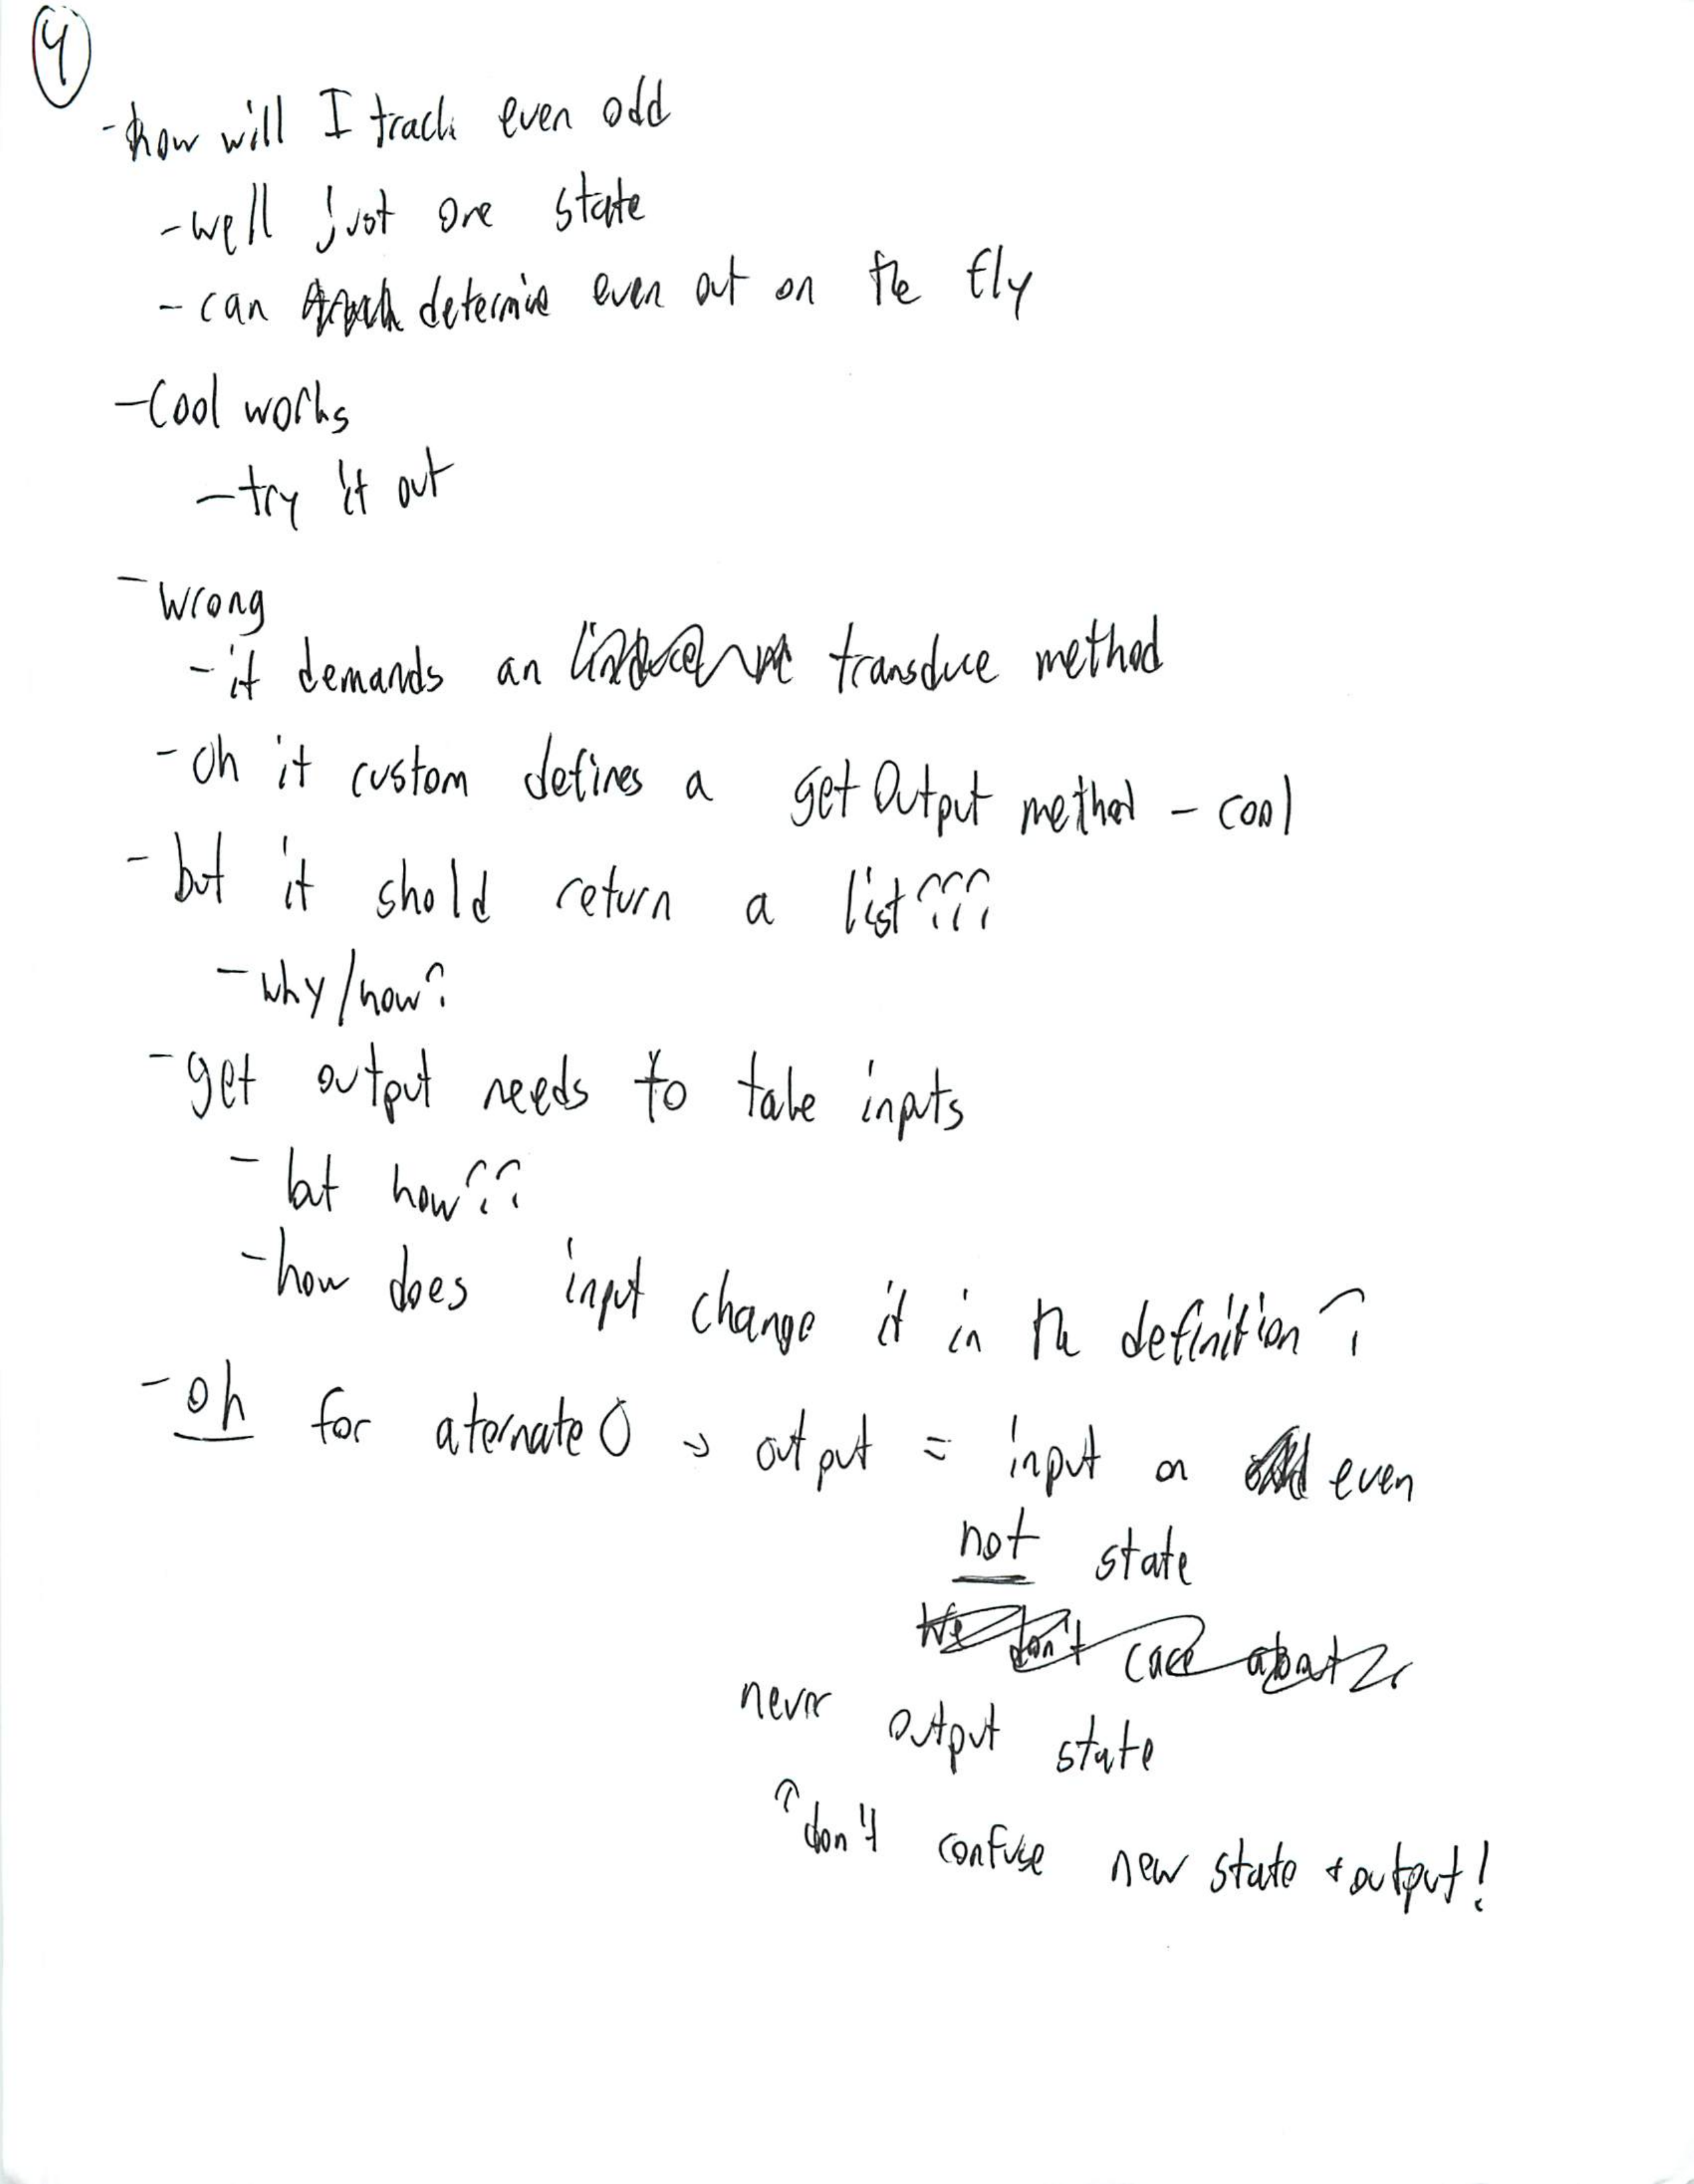 4
- how will I track even odd
- well just one state
- can determine even out on the fly
- Cool works
- try it out
- wrong
- it demands an transduce method
- oh it custom defines a getOutput method - cool
- but it shold return a list???
- why/how?
- get output needs to take inputs
- but how??
- how does input change it in the definition?
- oh for aternate 0 → output = input on even
not state
We don't care about
never output state
↑ don't confuse new state + output!